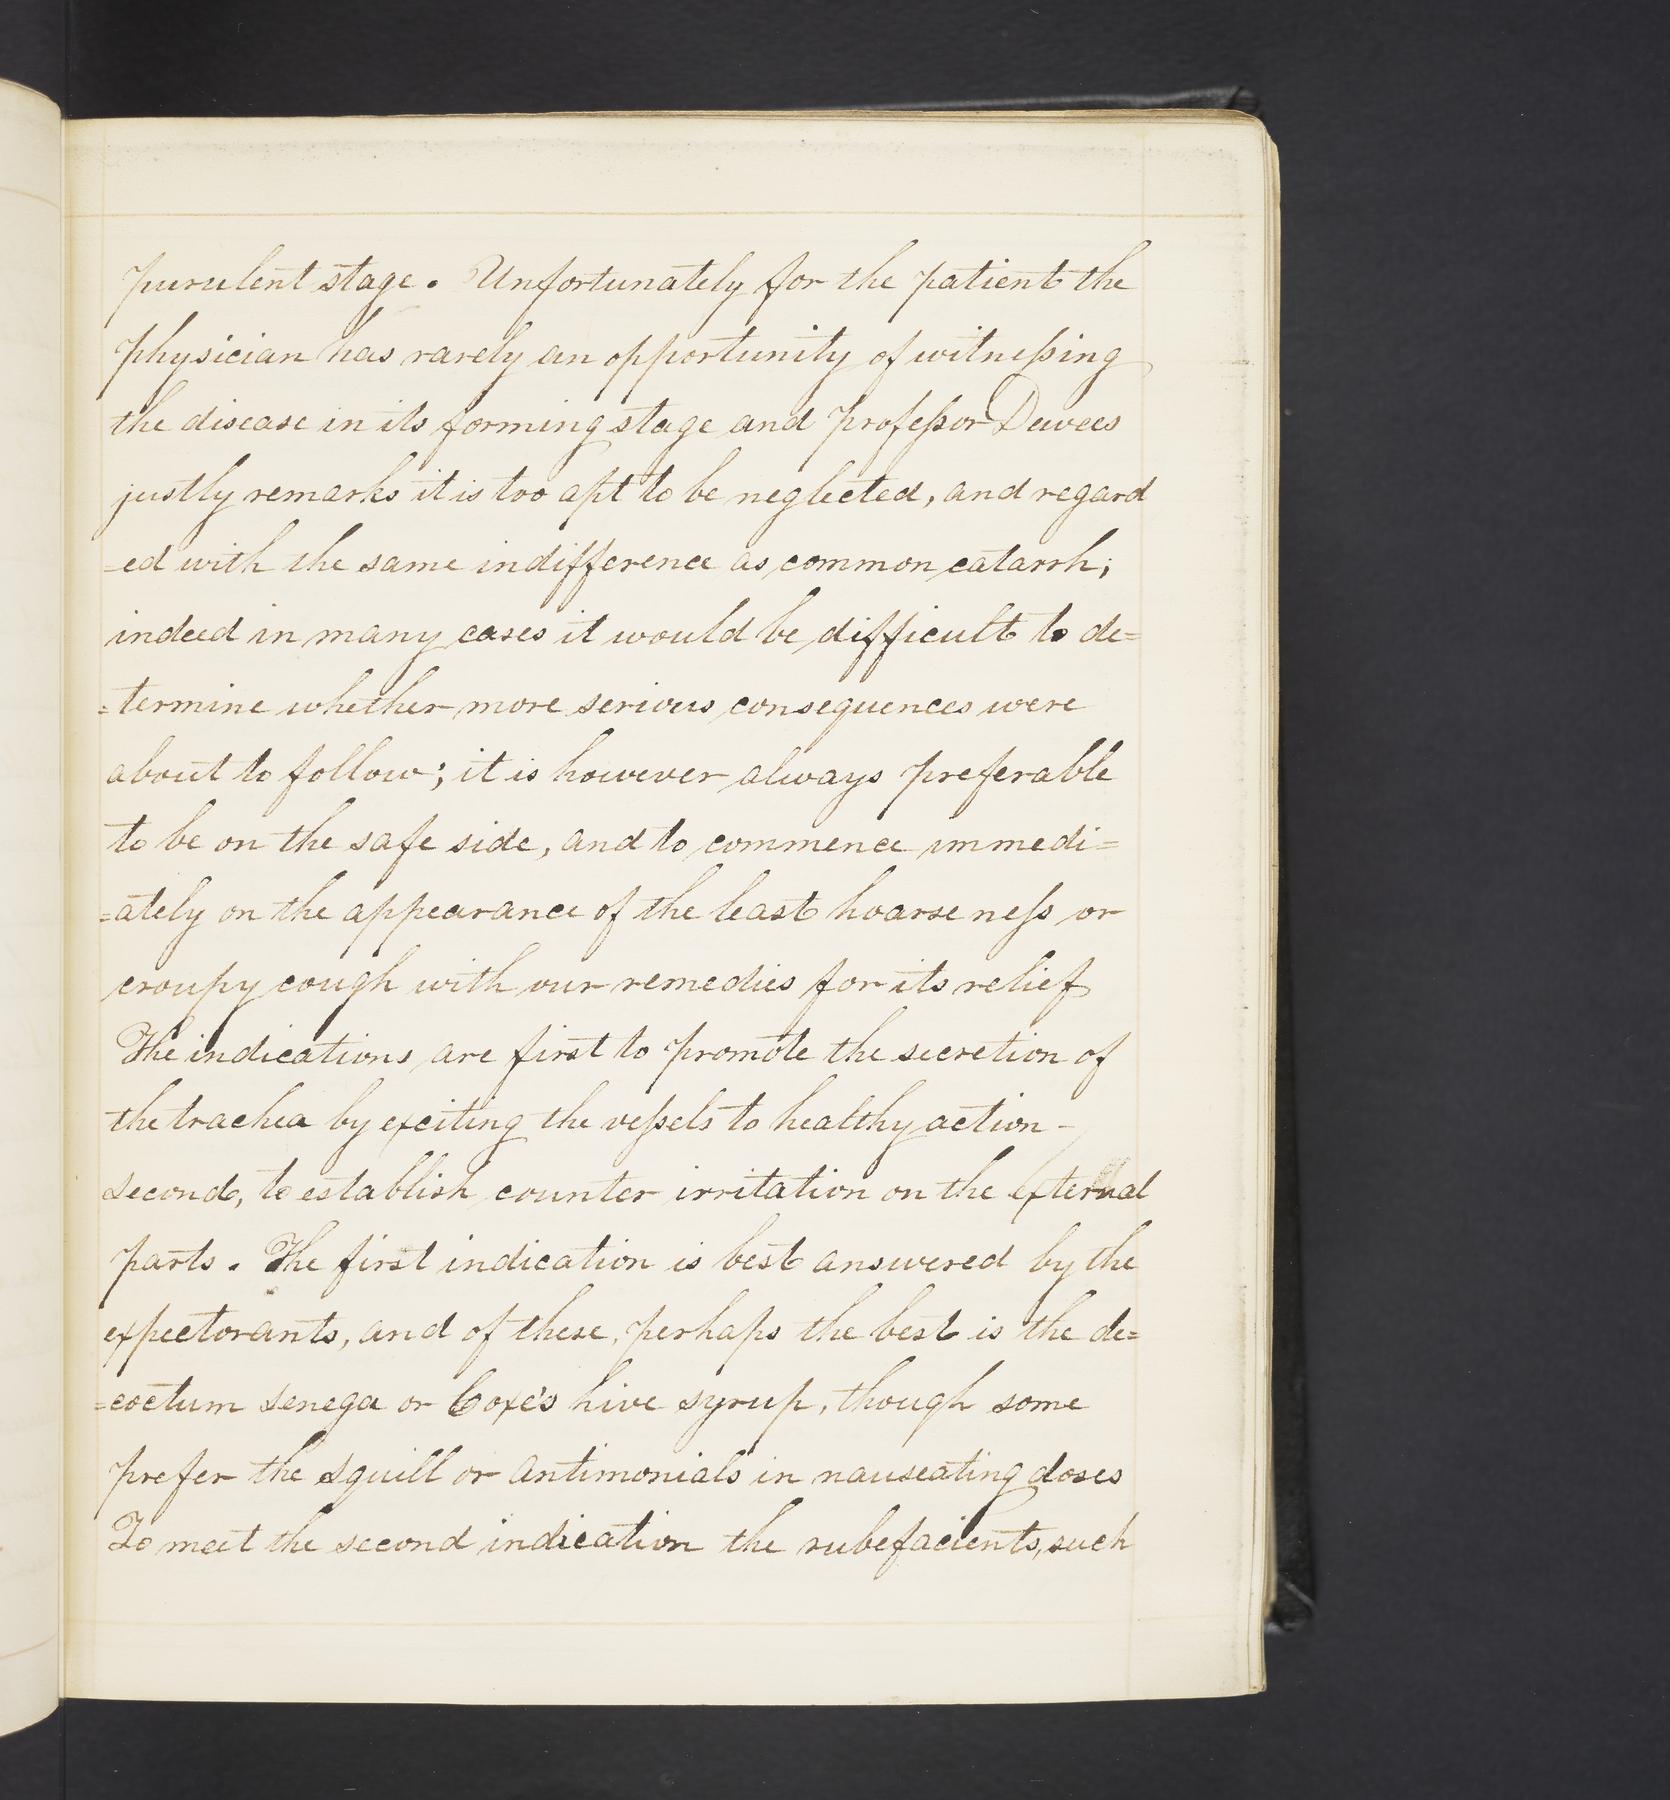 purulent stage. Unfortunately for the patient the
physician has rarely an opportunity of witneſsing
the disease in its forming stage and profeſsor Dewees
justly remarks it is too apt to be neglected, and regard
=ed with the same indifference as common catarrh;
indeed in many cases it would be difficult to de=
=termine whether more serious consequences were
about to follow; it is however always preferable
to be on the safe side, and to commence immedi=
=ately on the appearance of the least hoarseneſs or
croupy cough with our remedies for its relief
The indications are first to promote the secretion of
the trachea by exciting the veſsels to healthy action -
second, to establish counter irritation on the external
parts. The first indication is best answered by the
expectorants, and of these, perhaps the best is the de=
=coctum senega or Coxe's hive syrup, though some
prefer the squill or antimonials in nauseating doses
To meet the second indication the rubefacients, such